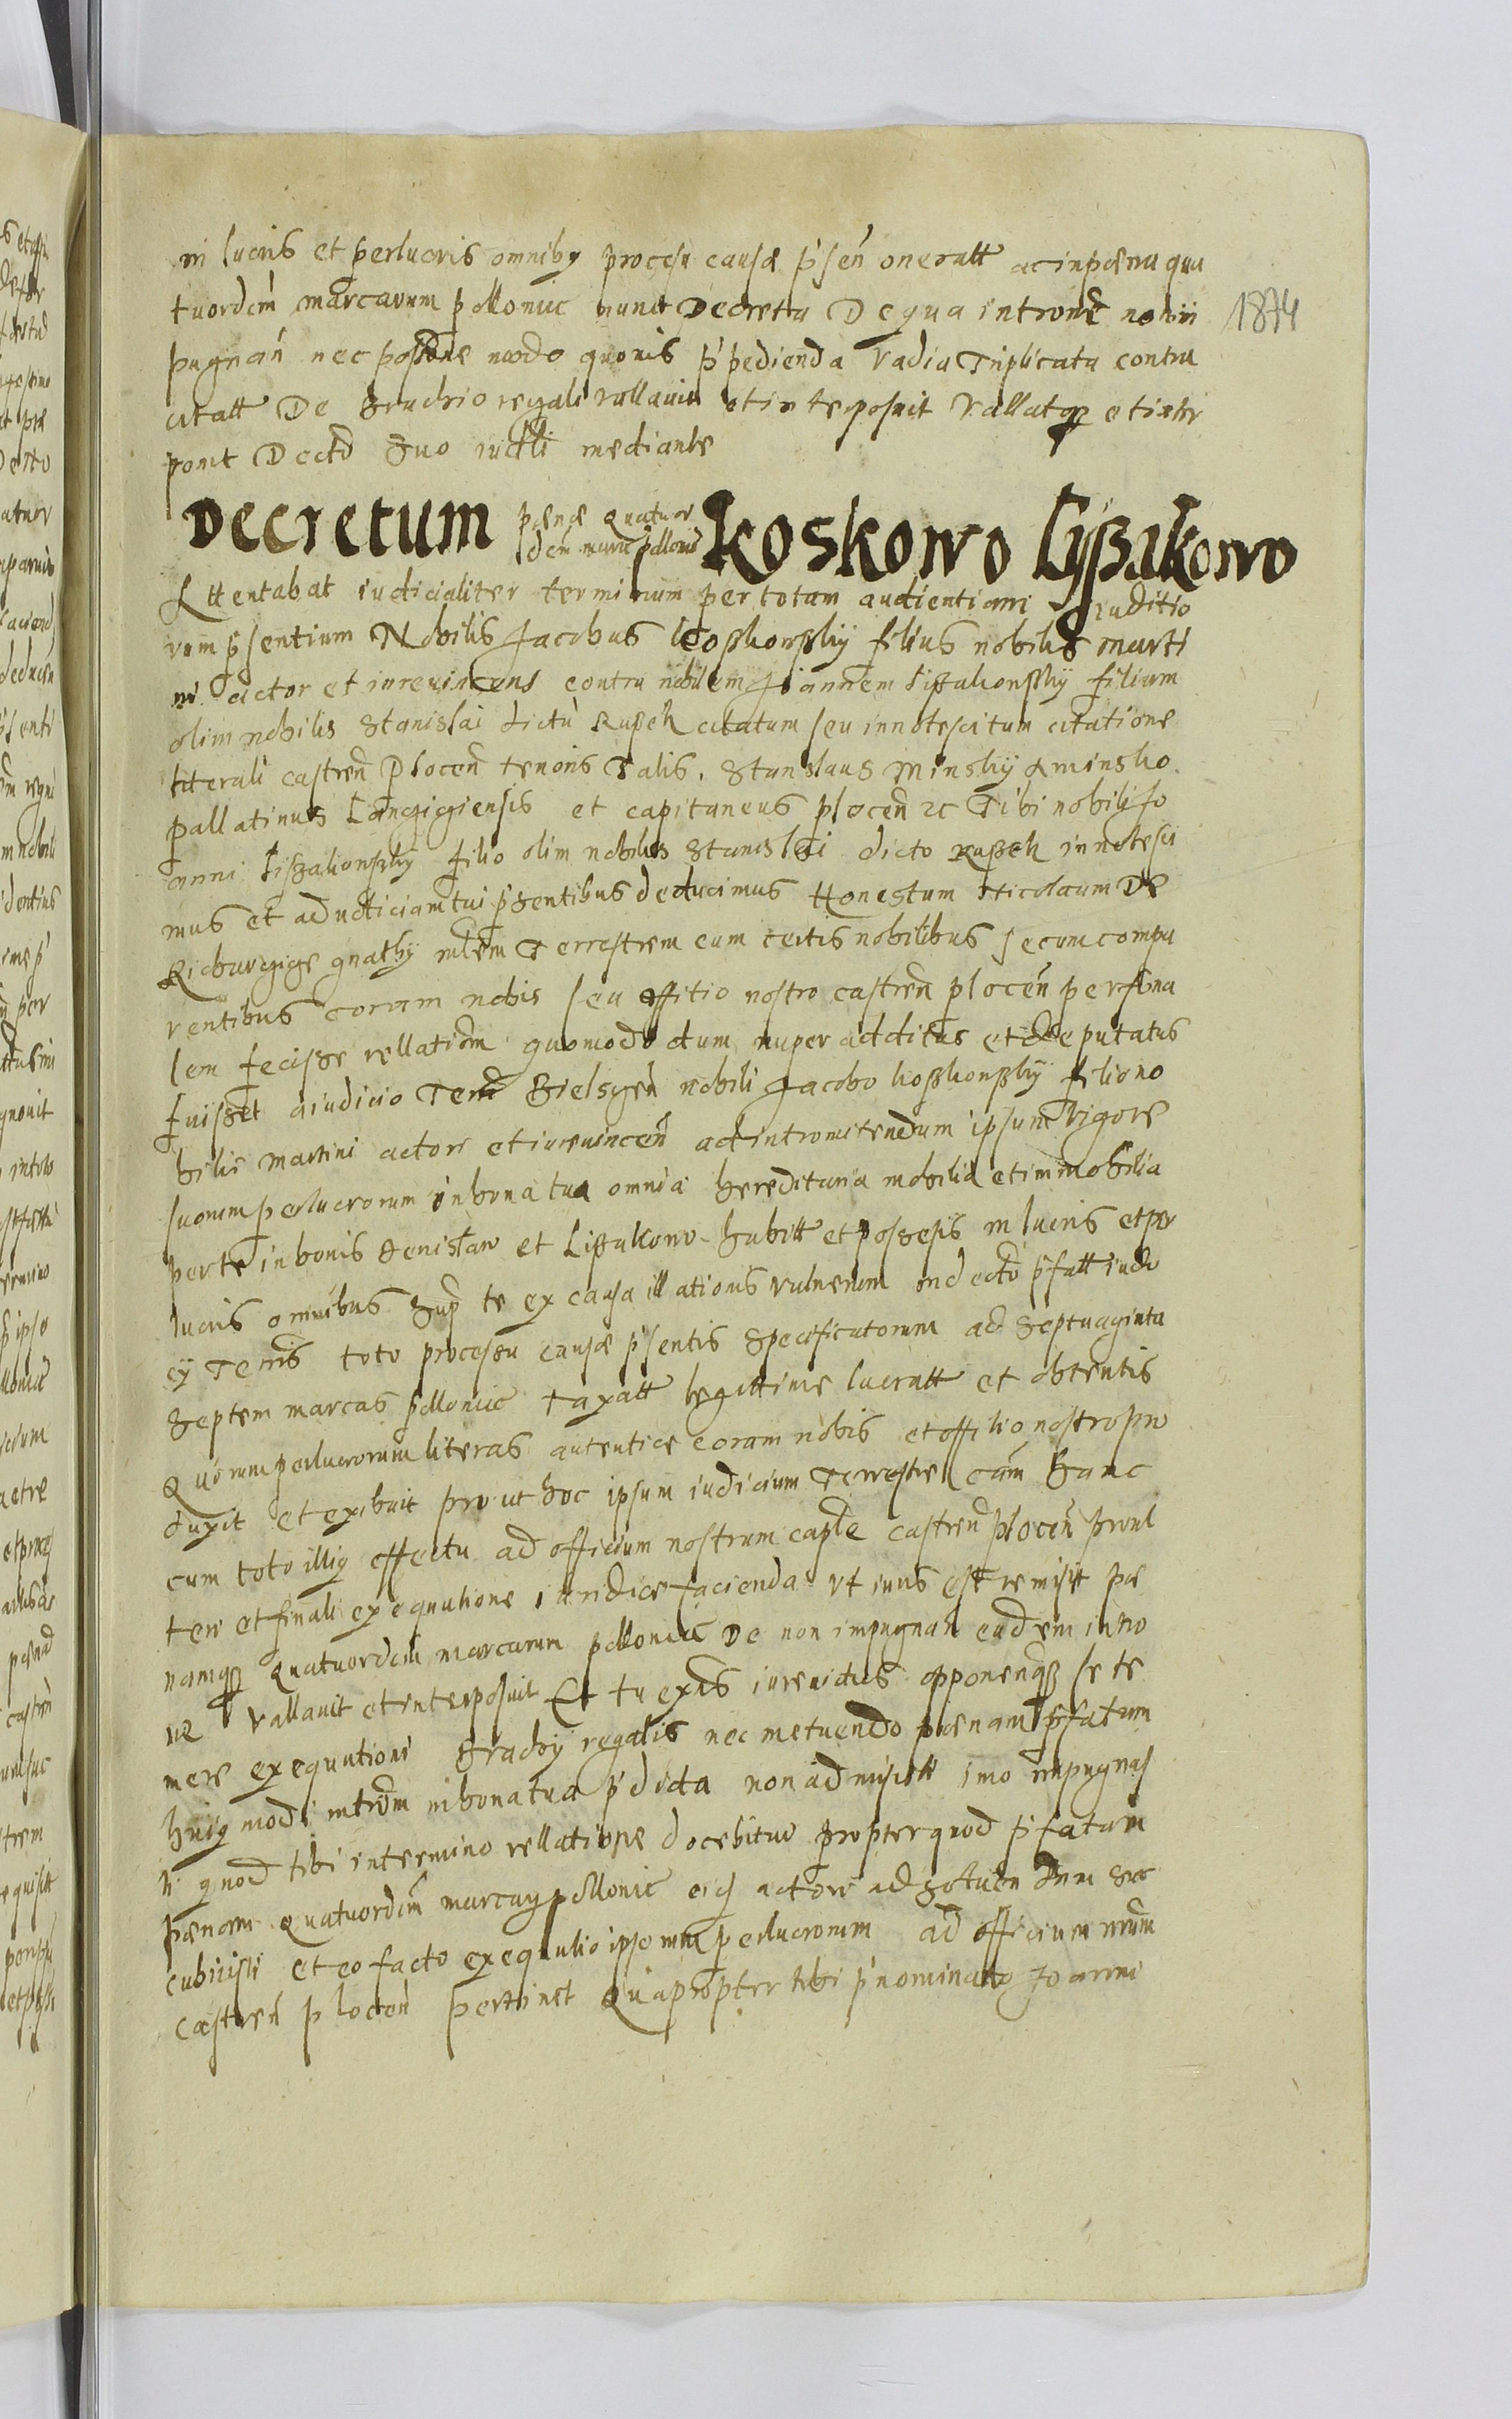 in lucris et perlucris omniby processu causæ p̃sen̄ oneratt ac in pœna qua
tuordem̄ marcarum polloniic nunc Decreta De qua introne non im
pugnan̄ nec possone modo quovis p̃pedienda Vadia Triplicata contra
citatt De Brachio regali vallavit et interposuit Vallatqȝ et inter
ponit Decto Suo iudlli mediante
Decretum pœnæ quatuor
dem̄ marc̄ pollonic̄ Koskowo Lyssakowo
Attentabat iudicialiter terminum per totam audientiam iuditio
rum p̃sentium Nobilis Jacobus Koskowsky filius nobilis marti
ni actor et iurevincens contra nobilem Joannem Lissakowsky filium
olim nobilis Stanislai dictu Rupek citatum seu innotescitum citatione
literali castren̄ Plocen̄ tenoris Talis. Stanislaus Minsky de minsko
pallatinus Lancziciensis et capitaneus plocen̄ etc Tibi nobili Jo
anni Lissakowsky filio olim nobilis Stanislai dicto Rupek innotesci
mus et ad notitiam tui p̃sentibus deducimus Honestum Nicolaum De
gnathy mlem̄ Terrestrem cum certis nobilibus secum compa
rentibus coram nobis seu offitio nostro castren̄ plocen̄ persona
lem fecisse rellationem̄ quomodo dum nuper additus et deputatus
fuisset a iudicio Terr̄ Bielscen̄ nobili Jacobo koskowsky filio no
bilis Martini actori et iurevincen̄ ad intromitendum ipsum vigore
suorum perlucrorum in bona tua omnia hereditaria mobilia et immobilia
per te in bonis et Lissakowo habitt et possessis in lucris et per
lucris omnibus Sup̄ te ex causa illationis vulnerum in decto p̃fatt iudi
cy Terris toto processu causæ p̃sentis Specificatorum ad Septuaginta
Septem marcas polloniic taxatt legittime lucratt et obtentis
Quorum perlucrorum literas autentice coram nobis et offitio nostro pro
duxit et exibuit prout hoc ipsum iudicium Terrestre eam̄ hanc
cum toto illiy effectu ad officium nostrum caple castren̄ plocen̄ pro ul
teri et finali exequutione iuridice facienda ut iuris est remisit pœ
namqȝ Quatuordem̄ marcarum polloniic De non impugnan̄ eadem intro
ne Vallavit et interposuit Et tu ex̄ns iurevictus opponenqȝ se te
mere exequutioni Brachy regalis nec metuendo pœnam p̃fatam
huiy modi introm̄ in bona tua p̃dicta non admisisti imo impugnas
ti quod tibi in termino rellatione docebitur propter quod p̃fatam
pœnam Quatuordem̄ marcary pollonic eidem actori ad solven dum suc
cubuisti et eo facto exequutio ipsorum perlucrorum ad officium nrum̄
castren̄ plocen̄ pertinet Quapropter tibi p̃nominato Joanni
1874